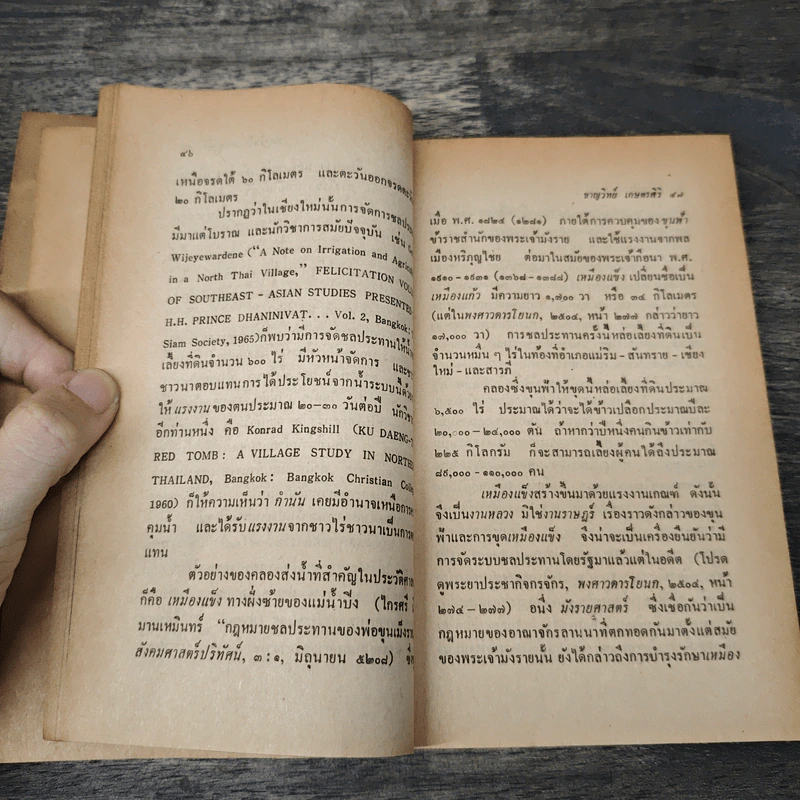 ๔๖
เหนือจรดใต้ ๖๐ กิโลเมตร และตะวันออกจรดตะวัน
๒๐ กิโลเมตร
ปรากฏว่าในเชียงใหม่นั้นการจัดการชลประ
มีมาแต่โบราณ และนักวิชาการสมัยปัจจุบัน เช่น
Wijeyewardene ("A Note on Irrigation and Agric
in a North Thai Village," FELICITATION VOL
OF SOUTHEAST - ASIAN STUDIES PRESENTED
H.H. PRINCE DHANINIVAT. . . Vol. 2, Bangkok:
Siam Society, 1965)ก็พบว่ามีการจัดชลประทานให้น้ำ
เลี้ยงที่ดินจำนวน ๖๐๐ ไร่ มีหัวหน้าจัดการ และ
ชาวนาตอบแทนการได้ประโยชน์จากน้ำระบบนี้ด้วย
ให้แรงงานของตนประมาณ ๒๐-๓๐ วันต่อปี นักวิช
อีกท่านหนึ่ง คือ Konrad Kingshill (KU DAENG-
RED TOMB: A VILLAGE STUDY IN NORTHE
THAILAND, Bangkok: Bangkok Christian Colle
1960) ก็ให้ความเห็นว่า กำนัน เคยมีอำนาจเหนือการค
คุมน้ำ และได้รับแรงงานจากชาวไร่ชาวนาเป็นการต
แทน
ตัวอย่างของคลองส่งน้ำที่สำคัญในประวัติศาส
ก็คือ เหมืองแข็ง ทางฝั่งซ้ายของแม่น้ำปิง (ไกรศรี
มานเหมินทร์ "กฎหมายชลประทานของพ่อขุนเม็งรา
สังคมศาสตร์ปริทัศน์, ๓ : ๑, มิถุนายน ๒๕๐๘) ซึ่ง
ชาญวิทย์ เกษตรศิริ ๔๗
เมื่อ พ.ศ. ๑๘๒๔ (๑๒๘๑) ภายใต้การควบคุมของขุนฟ้า
ข้าราชสำนักของพระเจ้ามังราย และใช้แรงงานจากพล
เมืองหริภุญไชย ต่อมาในสมัยของพระเจ้ากือนา พ.ศ.
๑๙๑๐-๑๙๓๑ (๑๓๖๘-๑๓๘๘) เหมืองแข็ง เปลี่ยนชื่อเป็น
เหมืองแก้ว มีความยาว ๑,๗๐๐ วา หรือ ๓๔ กิโลเมตร
(แต่ในพงศาวดารโยนก, ๒๕๐๔, หน้า ๒๗๗ กล่าวว่ายาว
๑๗,๐๐๐ วา) การชลประทานครั้งนี้หล่อเลี้ยงที่ดินเป็น
จำนวนหมื่น ๆ ไร่ในท้องที่อำเภอแม่ริม - สันทราย - เชียง
ใหม่ - และสารภี
คลองซึ่งขุนฟ้าให้ขุดนี้หล่อเลี้ยงที่ดินประมาณ
๖,๕๐๐ ไร่ ประมาณได้ว่าจะได้ข้าวเปลือกประมาณปีละ
๒๐,๐๐๐-๒๔,๐๐๐ ตัน ถ้าหากว่าปีหนึ่งคนกินข้าวเท่ากับ
๒๒๕ กิโลกรัม ก็จะสามารถเลี้ยงผู้คนได้ถึงประมาณ
๘๙,๐๐๐-๑๑๐,๐๐๐ คน
เหมืองแข็งสร้างขึ้นมาด้วยแรงงานเกณฑ์ ดังนั้น
จึงเป็นงานหลวง มิใช่งานราษฎร์ เรื่องราวดังกล่าวของขุน
ฟ้าและการขุดเหมืองแข็ง จึงน่าจะเป็นเครื่องยืนยันว่ามี
การจัดระบบชลประทานโดยรัฐมาแล้วแต่ในอดีต (โปรด
ดูพระยาประชากิจกรจักร, พงศาวดารโยนก, ๒๕๐๔, หน้า
๒๗๔-๒๗๗) อนึ่ง มังรายศาสตร์ ซึ่งเชื่อกันว่าเป็น
กฎหมายของอาณาจักรลานนาที่ตกทอดกันมาตั้งแต่สมัย
ของพระเจ้ามังรายนั้น ยังได้กล่าวถึงการบำรุงรักษาเหมือง